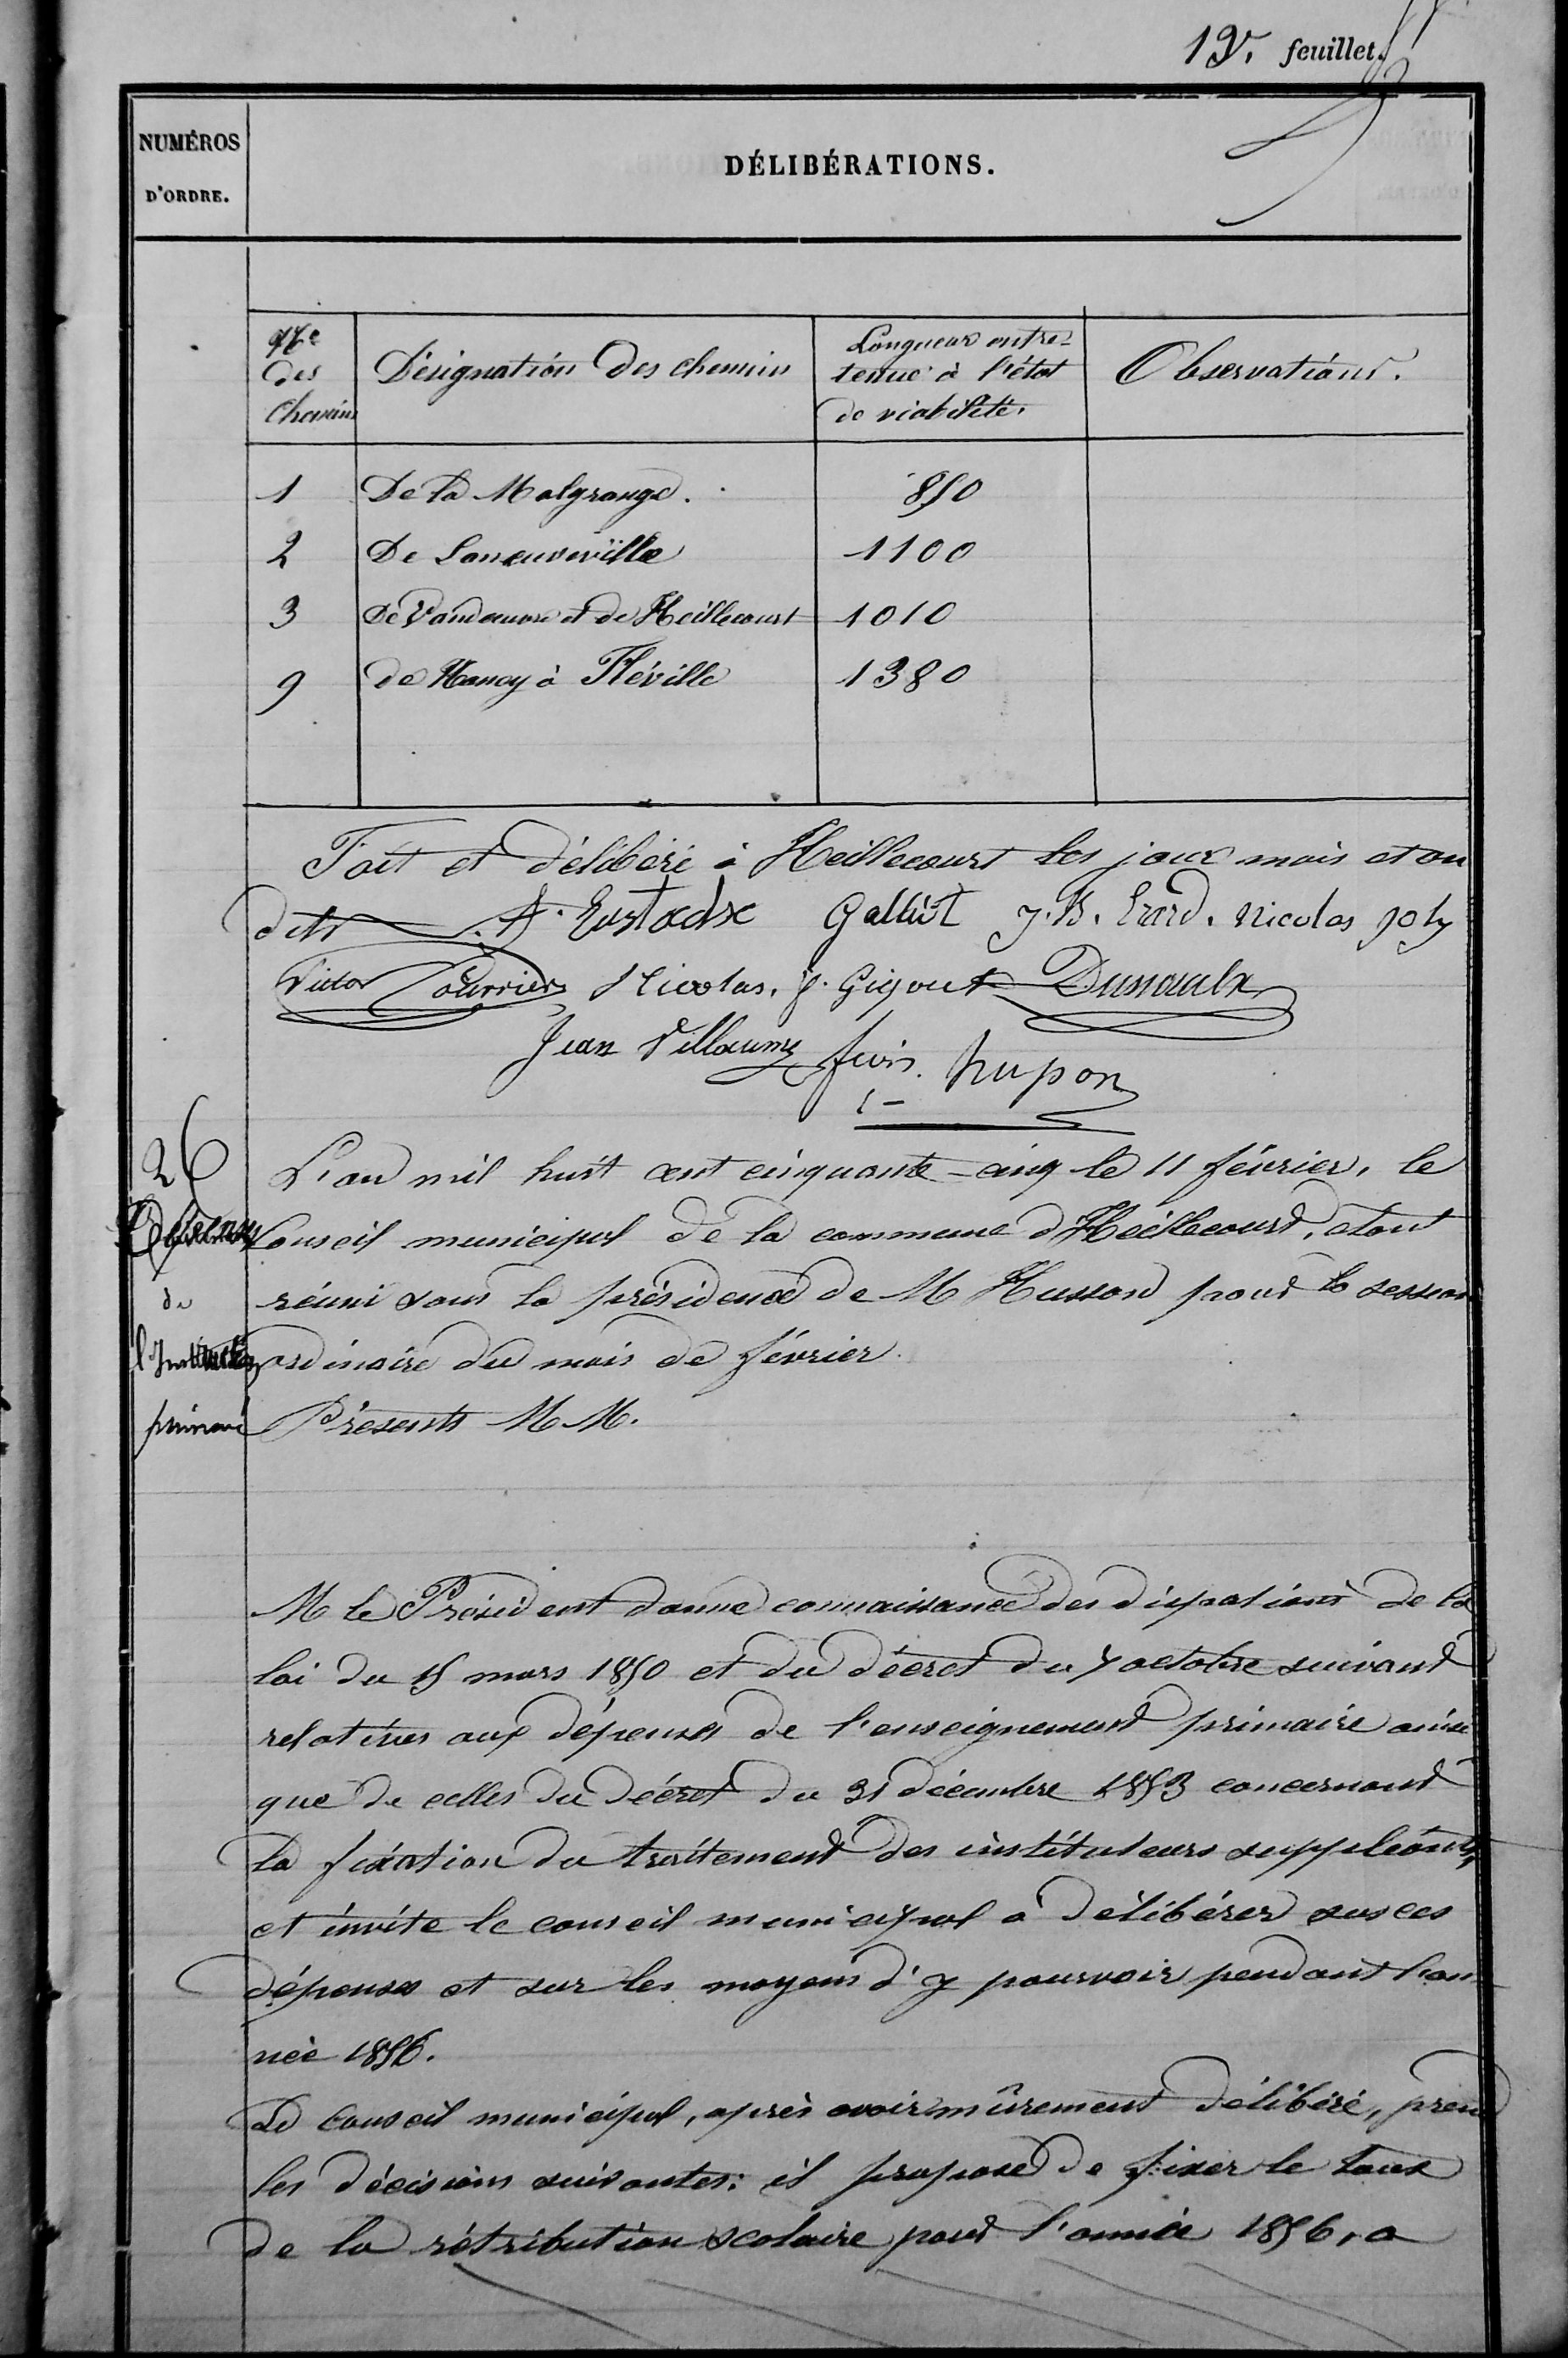 feuillet.
NUMÉROS
D'ORDRE.
DÉLIBÉRATIONS.
Nos
des
chemins
Désignation des chemins
Longueur entre-
tenue à l'état
de viabilité.
Observations.
1 De la Malgrange. 850
2 De Laneuveville 1100
3 De Vandœuvre et de Heillecourt 1010
9 de Nancy à Fléville 1380
Fait et délibéré à Heillecourt les jour mois et an
dits Galliot J. B. Erard. Nicolas Joly
Victor Nicolas. J. Gigout
Jean Villaume
26
de
l'Instituteur
primaire
L'an mil huit cent cinquante-cinq le 11 février, le
Conseil municipal de la commune d'Heillecourt, étant
réuni sous la présidence de M Husson pour la session
ordinaire du mois de février.
Présents M M.
M le Président donne connaissance des dispositions de la
loi du 15 mars 1850 et du décret du 7 octobre suivant
relatives aux dépenses de l'enseignement primaire ainsi
que de celles du décret du 31 décembre 1853 concernant
la fixation du traitement des instituteurs suppléants,
et invite le conseil municipal à délibérer sur ces
dépenses et sur les moyens d'y pourvoir pendant l'an
née 1856.
Le Conseil municipal, après avoir mûrement délibéré, prend
les décisions suivantes: il propose de fixer le taux
de la rétribution scolaire pour l'année 1856, a